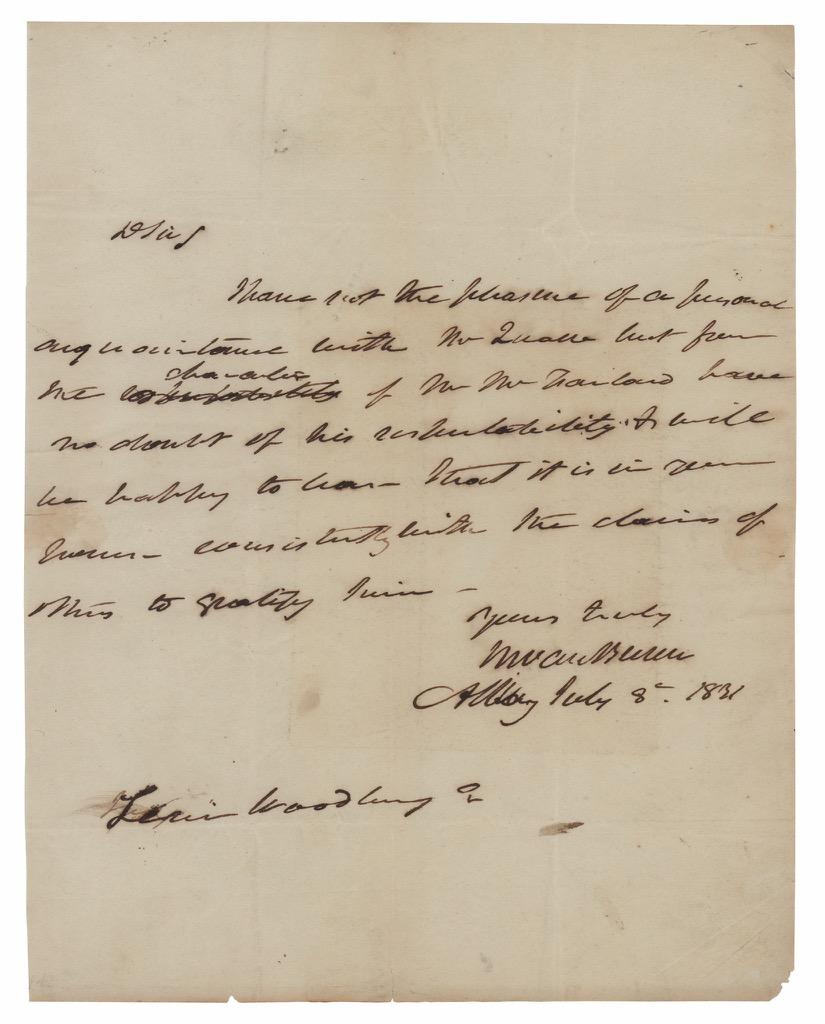 D Sir,
I have not the pleasure of a personal
acquaintance with Mr but from
the character of Mr have
no doubt of his respectability & will
be happy to hear that it is in your
power consistently with the claims of
others to gratify him -
Yours truly
M Van Buren
Albany July 8. 1831
Levi Woodbury